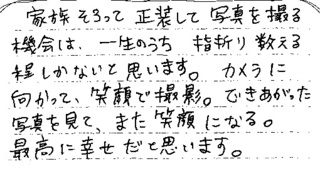 家族そろって 正装して 写真を撮る
機会は、一生のうち 指折り数える
程しかないと思います。カメラに
向かって、笑顔で撮影。できあがった
写真を見て、また笑顔になる。
最高に幸せだと思います。